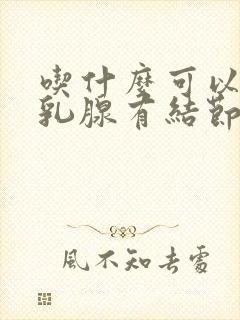 喫什麼可以
乳腺有結節
風不知去處